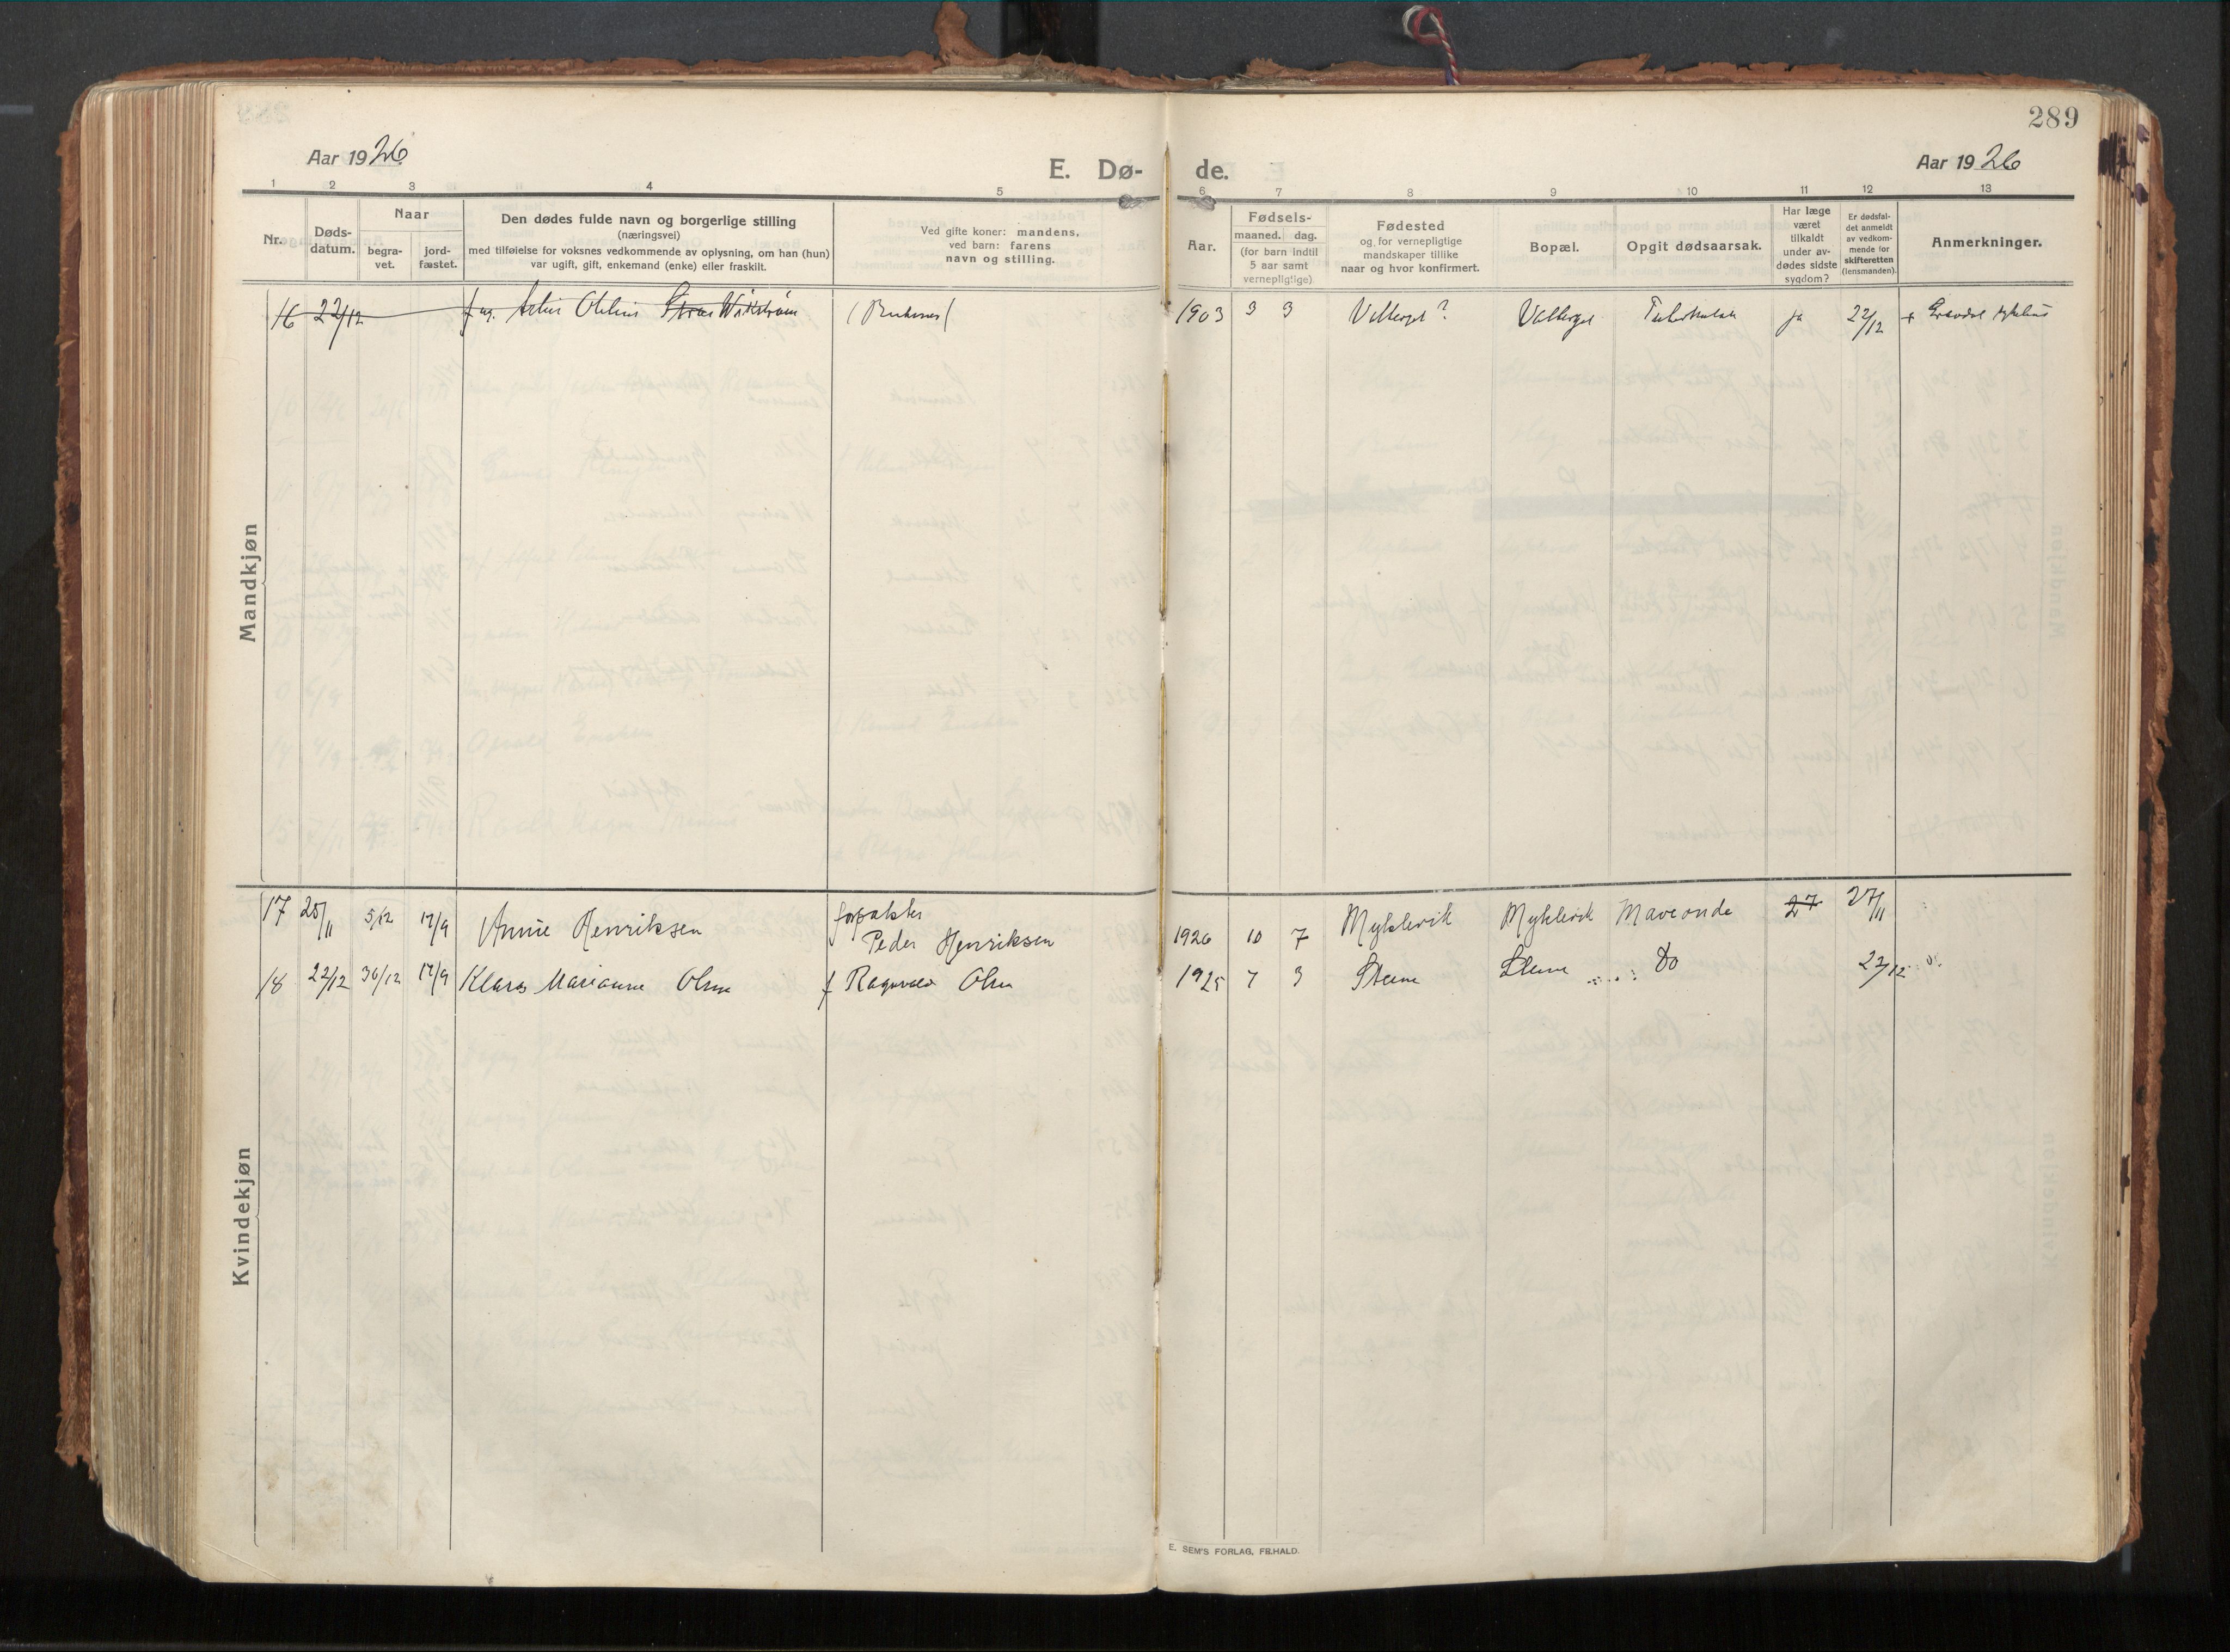 289
Aar 1926
E. Dø-
de.
Aar 1926
1 2 3 4 5 6 7 8 9 10 11 12 13
Nr.
Døds-
datum.
Naar
begra-
vet.
jord-
fæstet.
Den dødes fulde navn og borgerlige stilling
(næringsvei)
med tilføielse for voksnes vedkommende av oplysning, om han (hun)
var ugift, gift, enkemand (enke) eller fraskilt.
Ved gifte koner: mandens,
ved barn: farens
navn og stilling.
Aar.
Fødsels-
maaned. dag.
(for barn indtil
5 aar samt
vernepligtige)
Fødested
og, for vernepligtige
mandskaper tillike
naar og hvor konfirmert.
Bopæl.
Opgit dødsaarsak.
Har læge
været
tilkaldt
under av-
dødes sidste
sygdom?
Er dødsfal-
det anmeldt
av vedkom-
mende for
skifteretten
(lensmanden).
Anmerkninger.
Mandkjøn
16 22/12 1903 3 3 ja 22/12
Kvindekjøn
17 25/11 5/12 12/9 Annie Henriksen
Peder Henriksen
1926 10 7 Myklevik Myklevik Maveonde 27 27/11
18 22/12 30/12 12/9 Klara Marianne Olsen f Ragnvald Olsen 1925 7 3 Steine Steine Do 22/12
E. SEM'S FORLAG, FR.HALD.